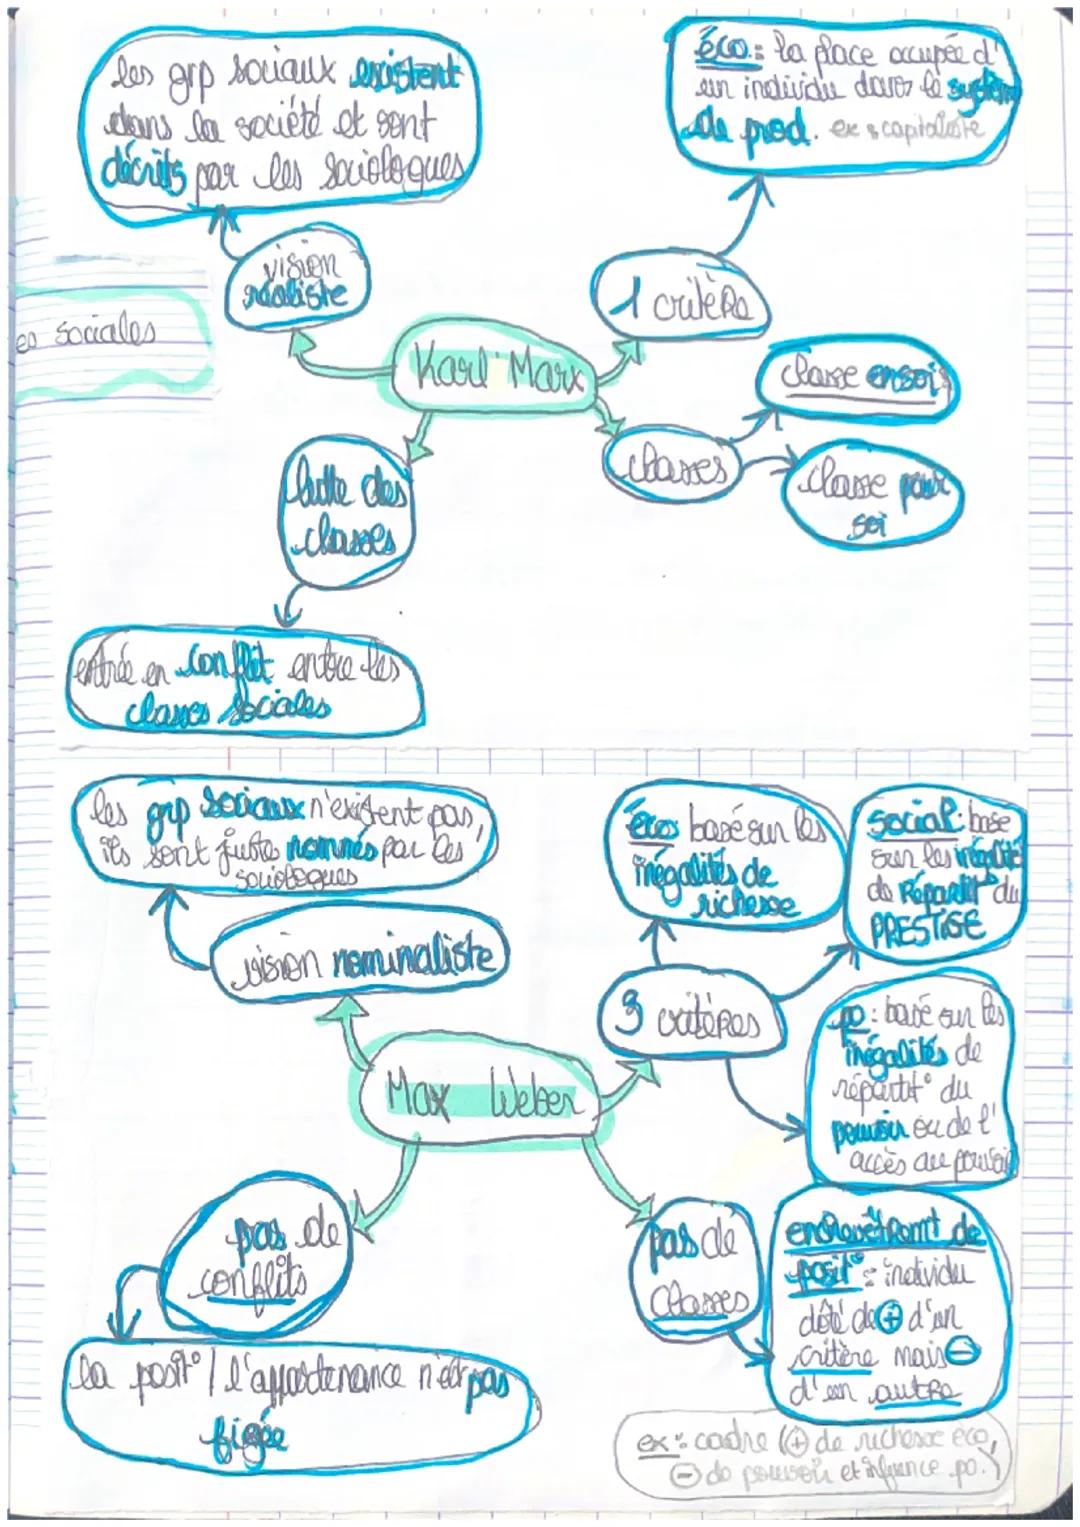 les grp sociaux existent
dans la société et sont
décrits par les sociologues
éco : la place occupée d'
un individu dans le système
de prod. ex : capitaliste
vision
réaliste
1 critère
sociales
Karl Marx
classe en soi
classes
classe pour
soi
lutte des
classes
entrée en conflit entre les
classes sociales
les grp sociaux n'existent pas,
ils sont juste nommés par les
sociologues
éco basé sur les
inégalités de
richesse
social : base
sur les inégalité
de répartit° du
PRESTIGE
vision nominaliste
3 critères
po : basé sur les
inégalités de
répartit° du
pouvoir ou de l'
accès au pouvoir
Max Weber
pas de
conflits
pas de
classes
de
posit° : individu
dôté de + d'un
critère mais -
d'un autre
la posit° / l'appartenance n'est pas
figée
ex : cadre (+ de richesse éco,
- de pouvoir et influence po.)